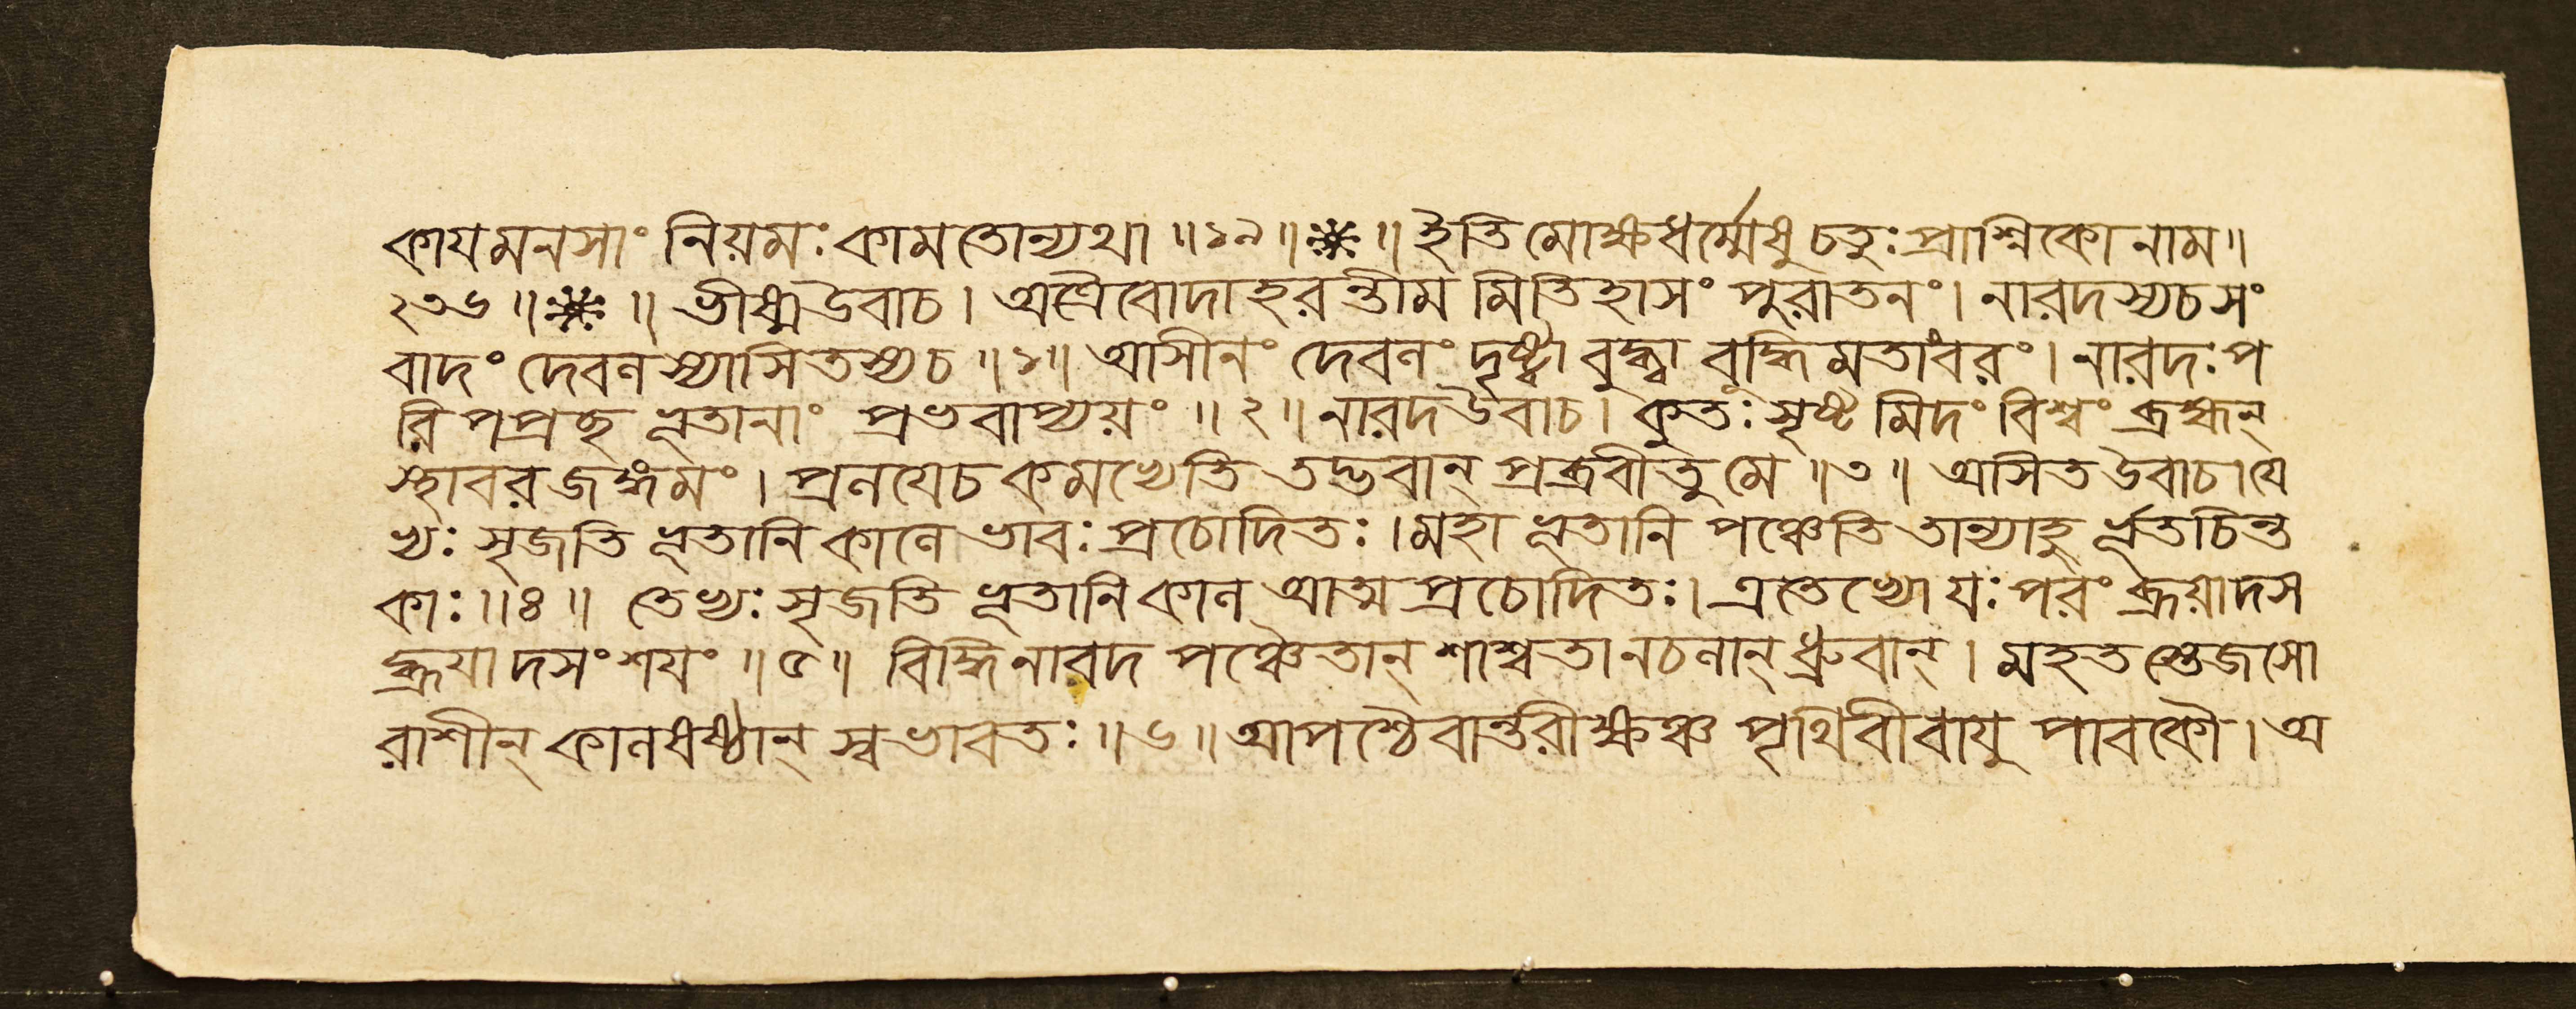 কাযমনসাং নিয়মঃ কামতোন্যথা ॥১৯॥ ※ ॥ ইতি মোক্ষধর্ম্মেষু চতুঃপ্রাশ্নিকো নাম॥
২৩৬ ॥ ※ ॥ ভীষ্মউবাচ। অত্রৈবোদাহরন্তীম মিতিহাসং পুরাতনং। নারদস্যচসং
বাদং দেবলস্যাসিতস্যচ ॥১॥ আসীনং দেবলং দৃষ্ট্বা বুদ্ধ্বা বুদ্ধিমতাংবরং। নারদঃপ
রিপপ্রচ্ছ ভূতানাং প্রভবাপ্যয়ং ॥২॥ নারদউবাচ। কুতঃ সৃষ্ট মিদং বিশ্বং ব্রহ্মন্
স্থাবরজঙ্গমং। প্রলযেচ কমভ্যেতি তদ্ভবান্ প্রব্রবীতু মে ॥৩॥ অসিত উবাচ।যে
ভ্যঃ সৃজতি ভূতানি কালে ভাবঃ প্রচোদিতঃ। মহা ভূতানি পঞ্চেতি তান্যাহু র্ভূতচিন্ত
কাঃ॥৪॥ তেভ্যঃ সৃজতি ভূতানি কাল আত্ম প্রচোদিতঃ। এতেভ্যো যঃ পরং ব্রূয়াদস
দ্ব্রূযাদসংশযং ॥৫॥ বিদ্ধি নারদ পঞ্চৈতান্ শাশ্বতানচলান্ ধ্রুবান্। মহতস্তেজসো
রাশীন্ কালষষ্ঠান্ স্বভাবতঃ ॥৬॥ আপশ্চৈবান্তরীক্ষঞ্চ পৃথিবীবাযু পাবকৌ। অ